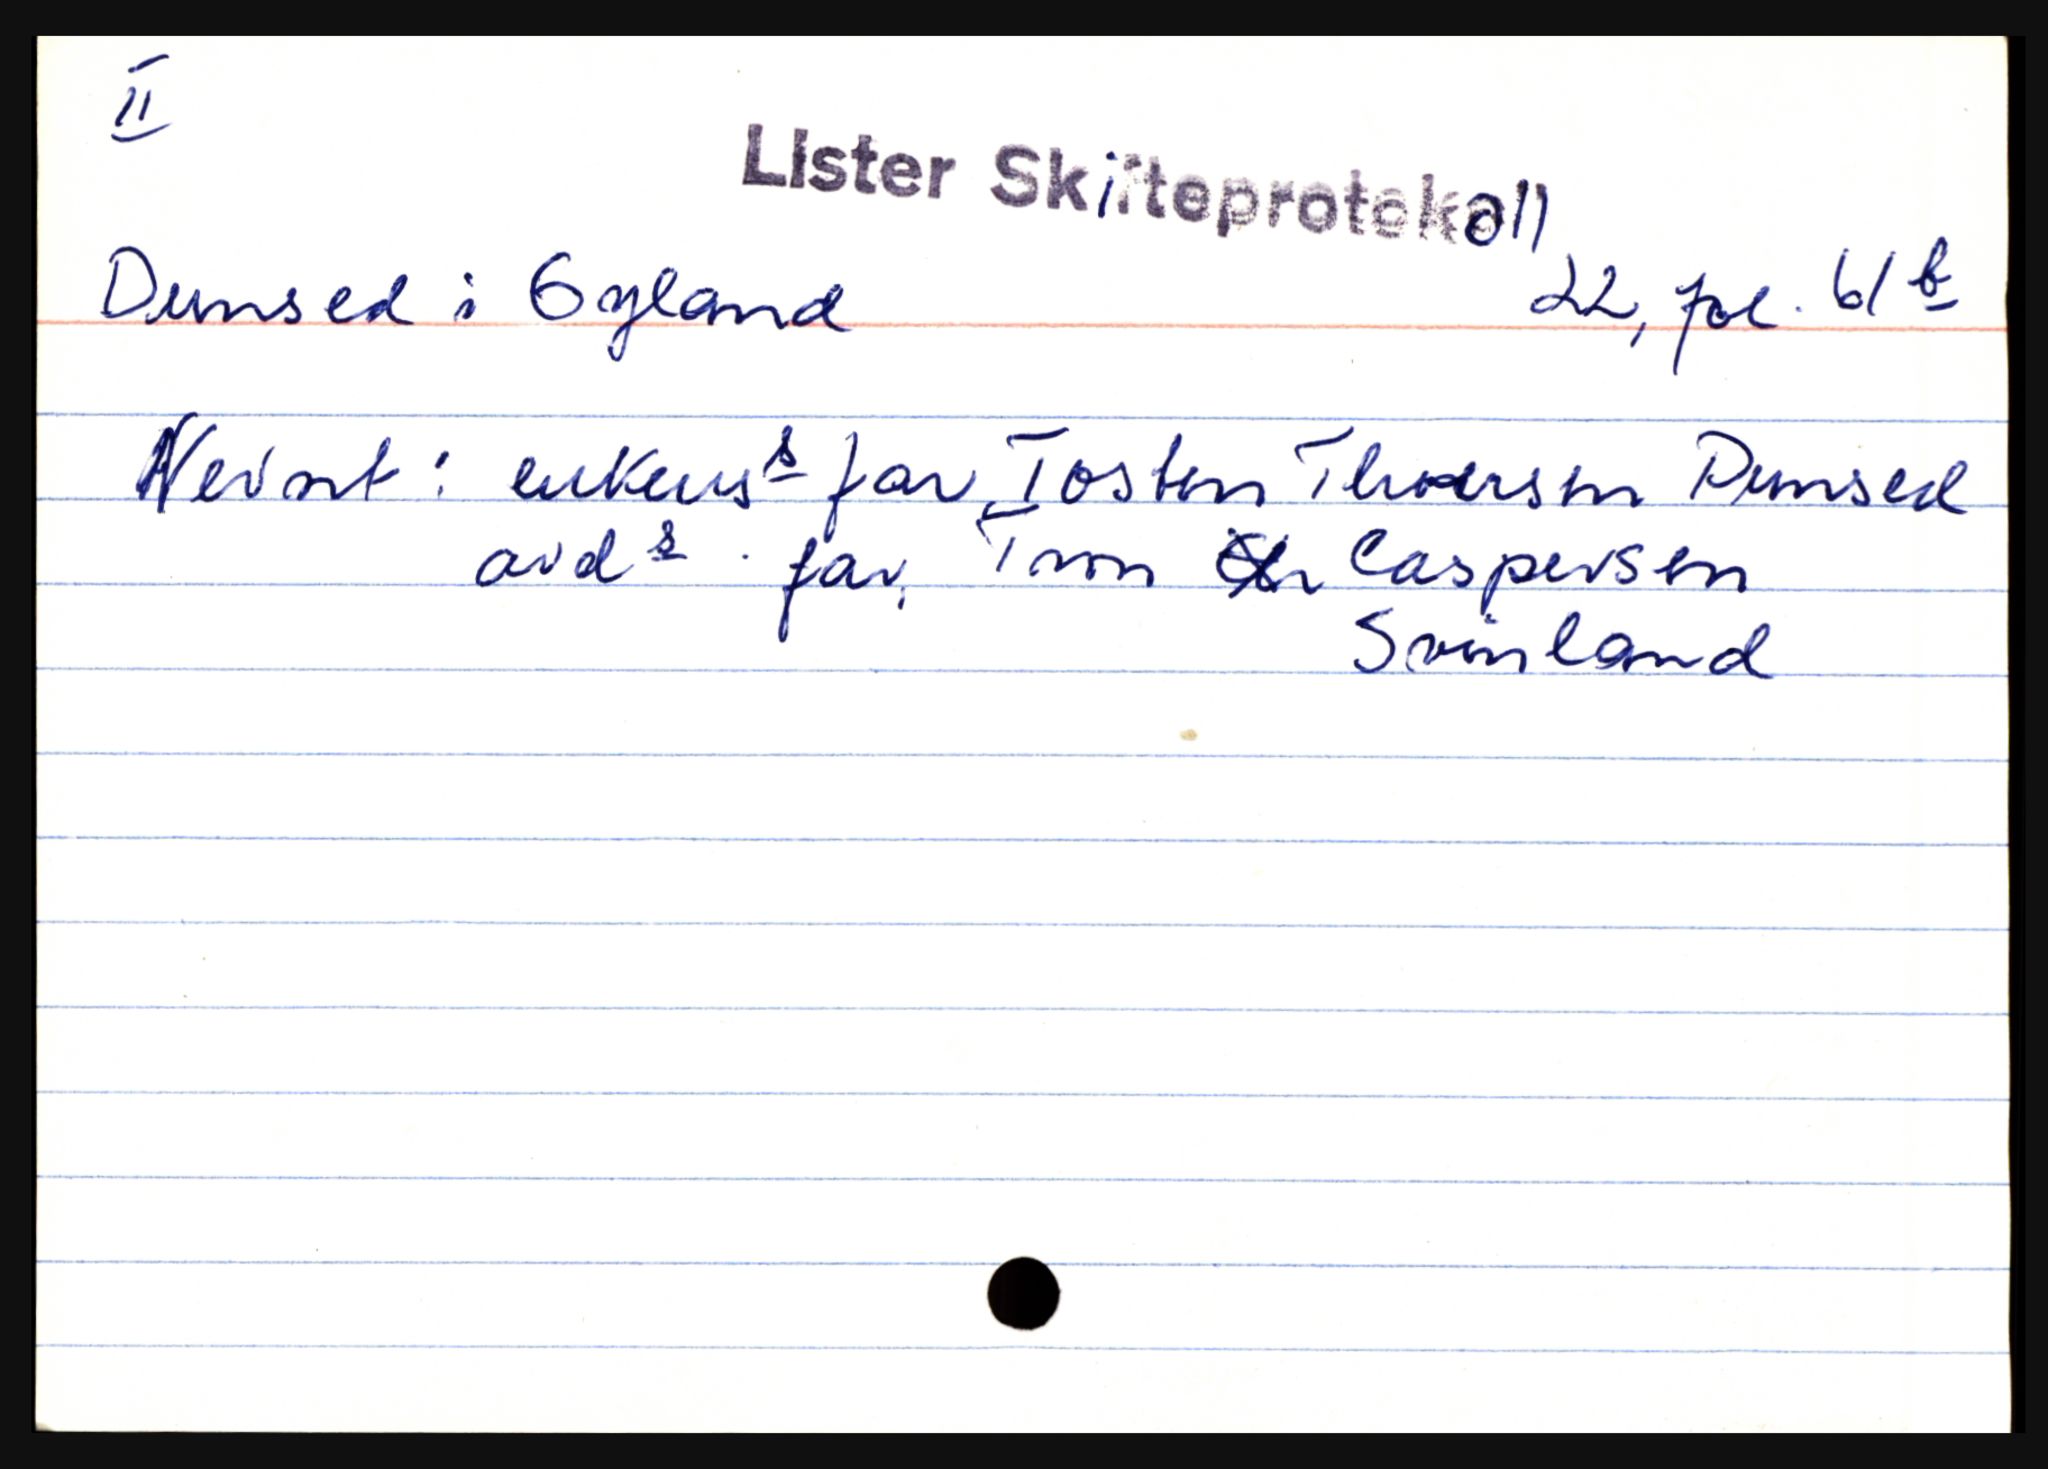 II
Lister Skifteprotokoll
Dunsed i Gyland 22, fol. 61 b
Nevnt: enkens far, Tosten Thorersen Dunsed
avds. far, Tron Caspersen
Svinland